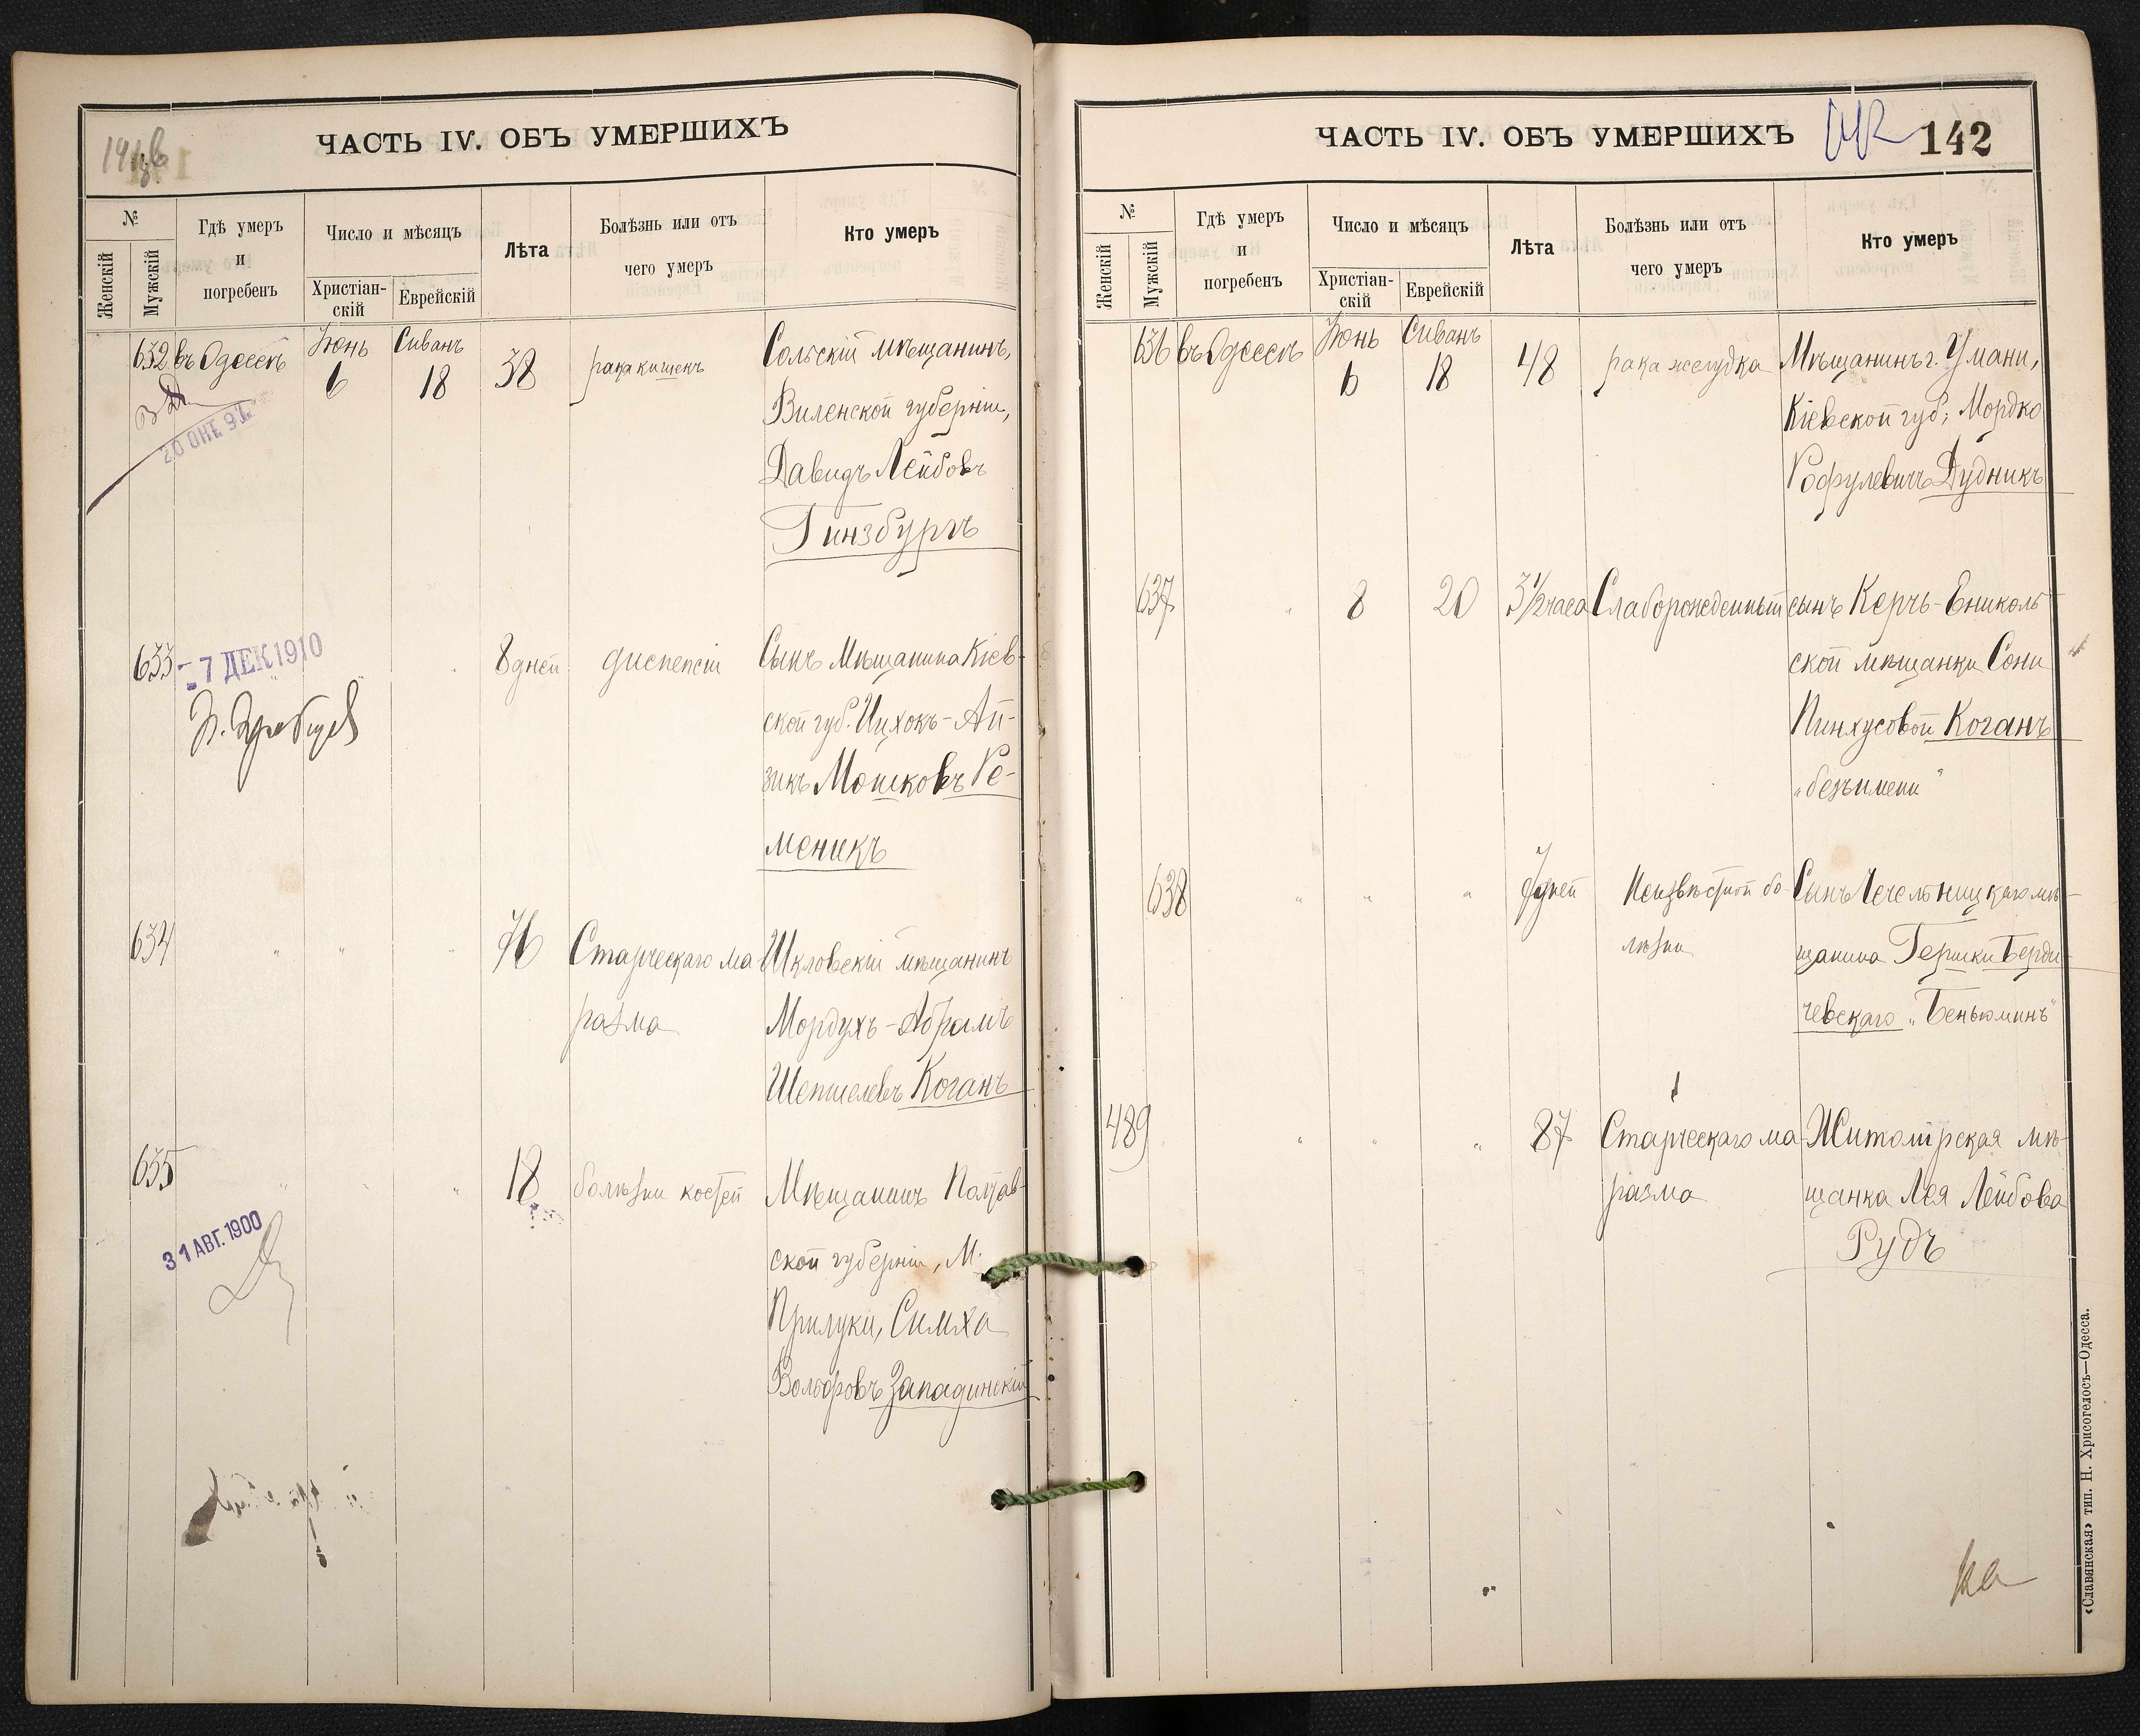 ЧАСТЬ IV. ОБЪ УМЕРШИХЪ
№
Женскій
Мужскій
Гдѣ умеръ
и
погребенъ
Число и мѣсяцъ
Христіан-
скій
Еврейскій
Лѣта
Болѣзнь или отъ
чего умеръ
Кто умеръ
632 въ Одессѣ Іюнь 6 Сиванъ 18 38 рака кишекъ Сольскій мѣщанинъ,
Виленской губерніи,
Давидъ Лейбовъ
Гинзбургъ
20 ОКТ. 97
633 " " 8 дней диспепсіи Сынъ Мѣщанина Кіев-
ской губ. Ицхокъ-Ай-
зикъ Мошковъ Ре-
меникъ
- 7 ДЕК 1910
634 " " " 76 Старческаго ма- Шкловскій мѣщанинъ
разма Мордухъ-Абрамъ
Шепшелевъ Коганъ
635 " " " 18 болѣзни костей Мѣщанинъ Полтав-
ской губерніи, М.
Прилуки, Симха
Вольфовъ Западинскій
31 АВГ. 1900
ЧАСТЬ IV. ОБЪ УМЕРШИХЪ
142
№
Женскій
Мужскій
Гдѣ умеръ
и
погребенъ
Число и мѣсяцъ
Христіан-
скій
Еврейскій
Лѣта
Болѣзнь или отъ
чего умеръ
Кто умеръ
636 въ Одессѣ Іюнь 6 Сиванъ 18 48 рака желудка Мѣщанинъ г. Умани,
Кіевской губ; Мордко
Рофулевичъ Дудникъ
637 " 8 20 3 1/2 часа Слаборожденный сынъ Керчь-Ениколь-
ской мѣщанки Сони
Пинхусовой Коганъ
„безъимени"
638 " " " 7 дней Неизвѣстной бо- Сынъ Чечельницкаго мѣ-
лѣзни щанина Гершки Берди-
чевскаго „Беньюминъ"
489 " " " 87 Старческаго ма- Житомірская мѣ-
разма щанка Лея Лейбова
Рудъ
«Славянская» тип. Н. Хрисогелосъ—Одесса.